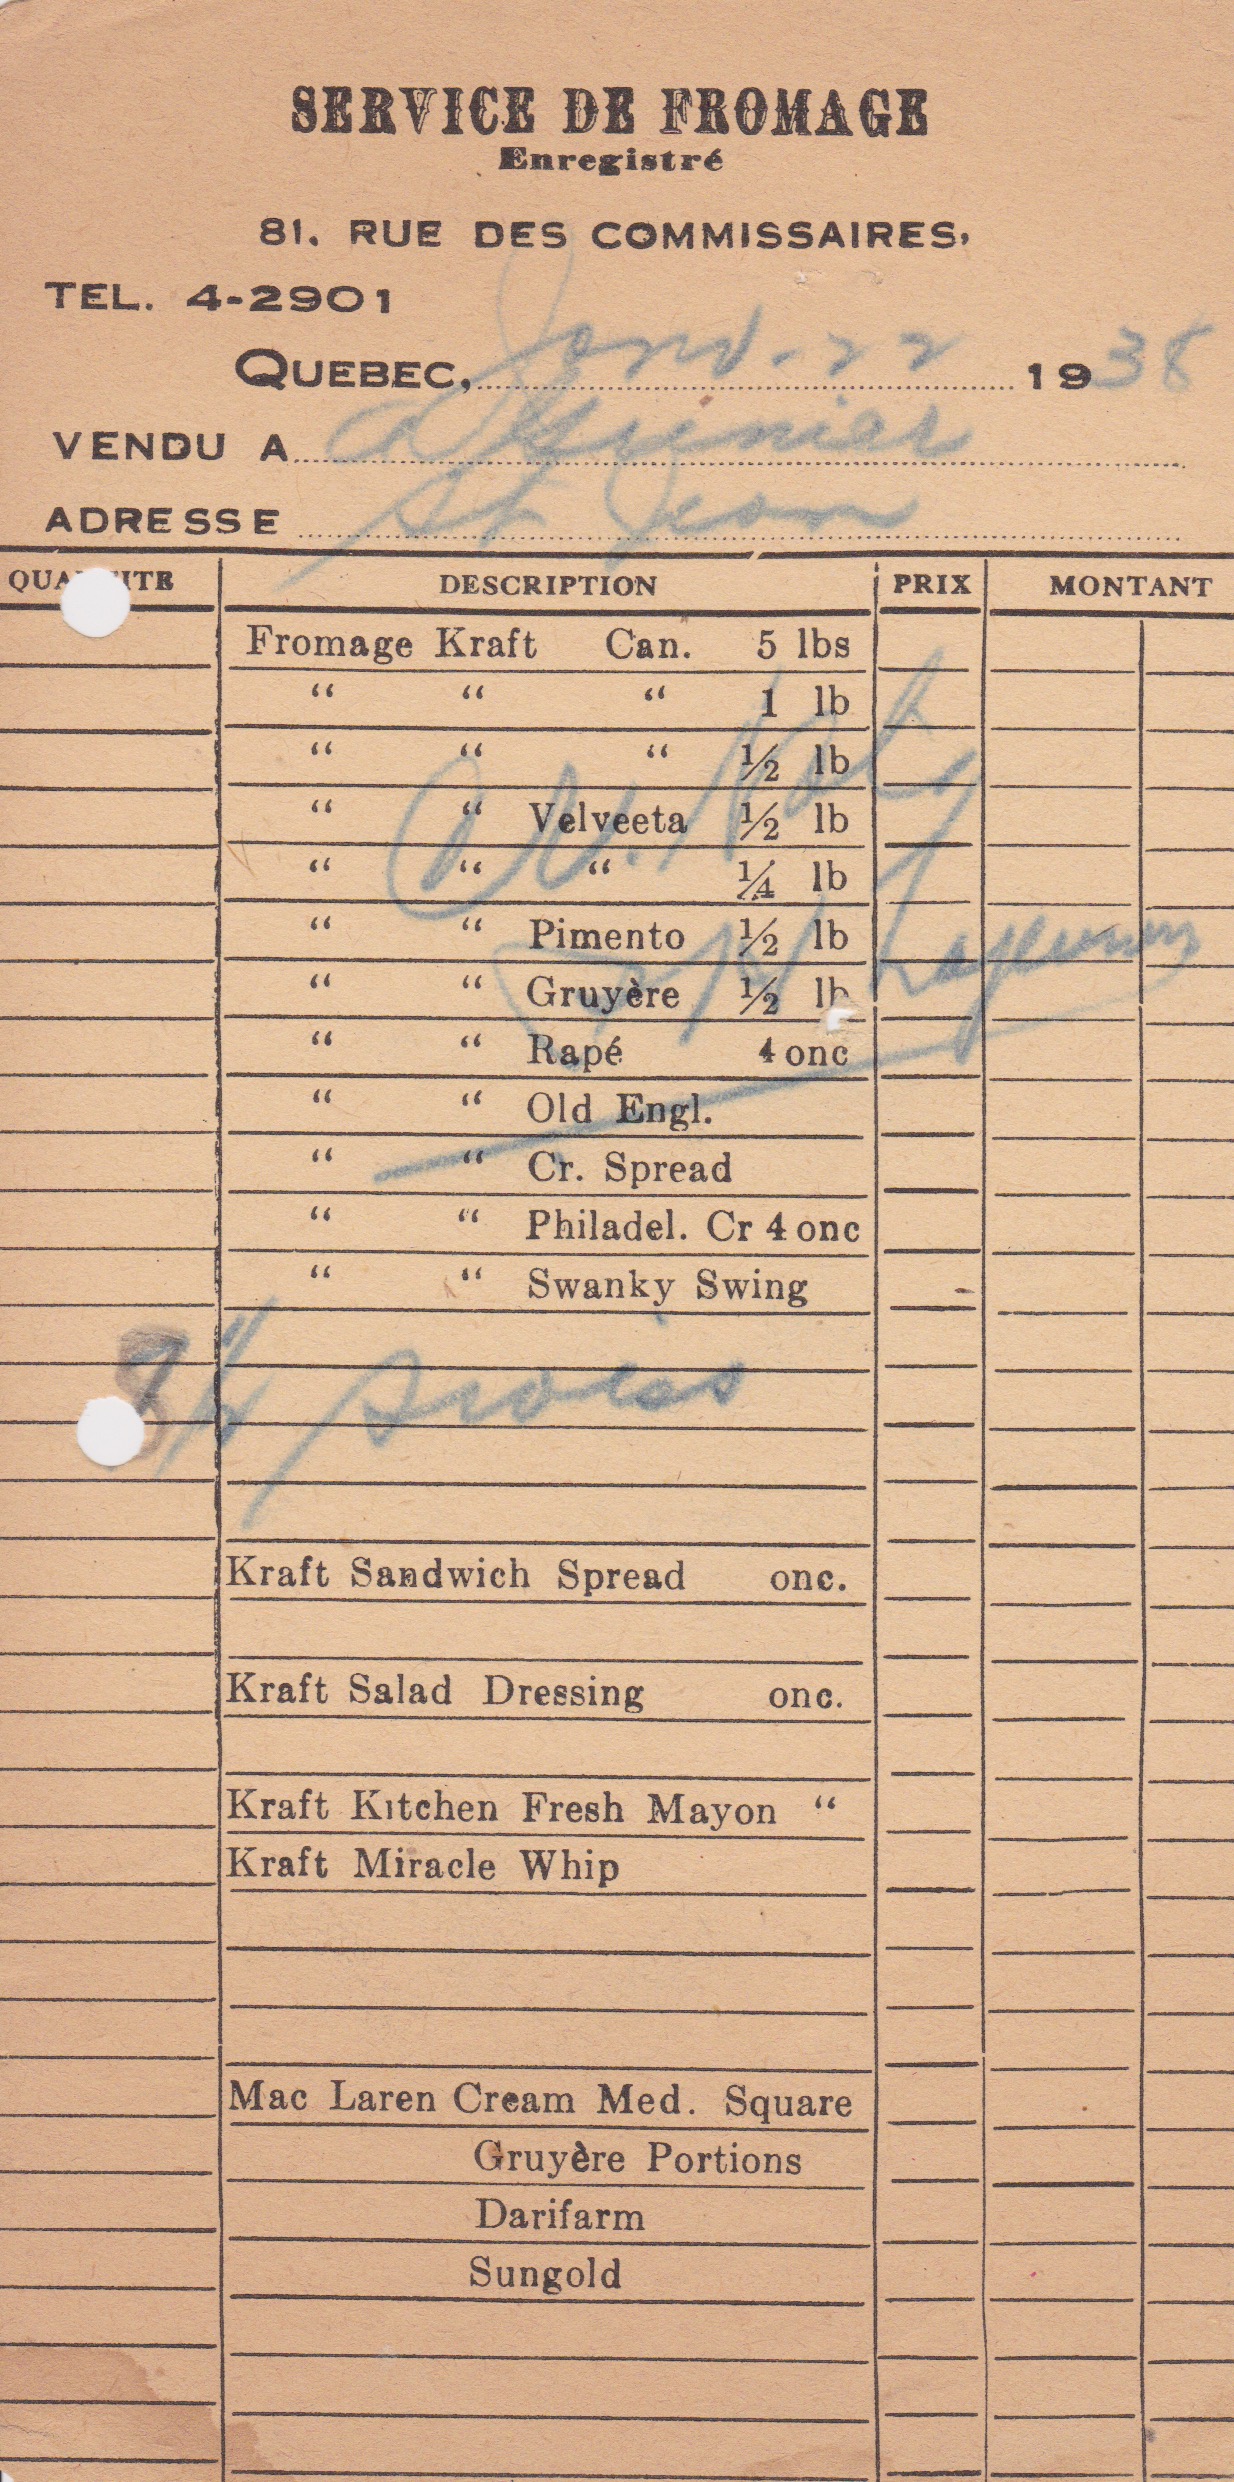 SERVICE DE FROMAGE
Enregistré
81. RUE DES COMMISSAIRES,
TEL. 4-2901
QUEBEC, Janv. 22 1938
VENDU A Grenier
ADRESSE St Jean
QUANTITE DESCRIPTION PRIX MONTANT
Fromage Kraft Can. 5 lbs
“ “ “ 1 lb
“ “ “ ½ lb
“ “ Velveeta ½ lb
“ “ “ ¼ lb
“ “ Pimento ½ lb
“ “ Gruyère ½ lb
“ “ Rapé 4 onc
“ “ Old Engl.
“ “ Cr. Spread
“ “ Philadel. Cr 4 onc
“ “ Swanky Swing
Kraft Sandwich Spread onc.
Kraft Salad Dressing onc.
Kraft Kitchen Fresh Mayon “
Kraft Miracle Whip
Mac Laren Cream Med. Square
Gruyère Portions
Darifarm
Sungold